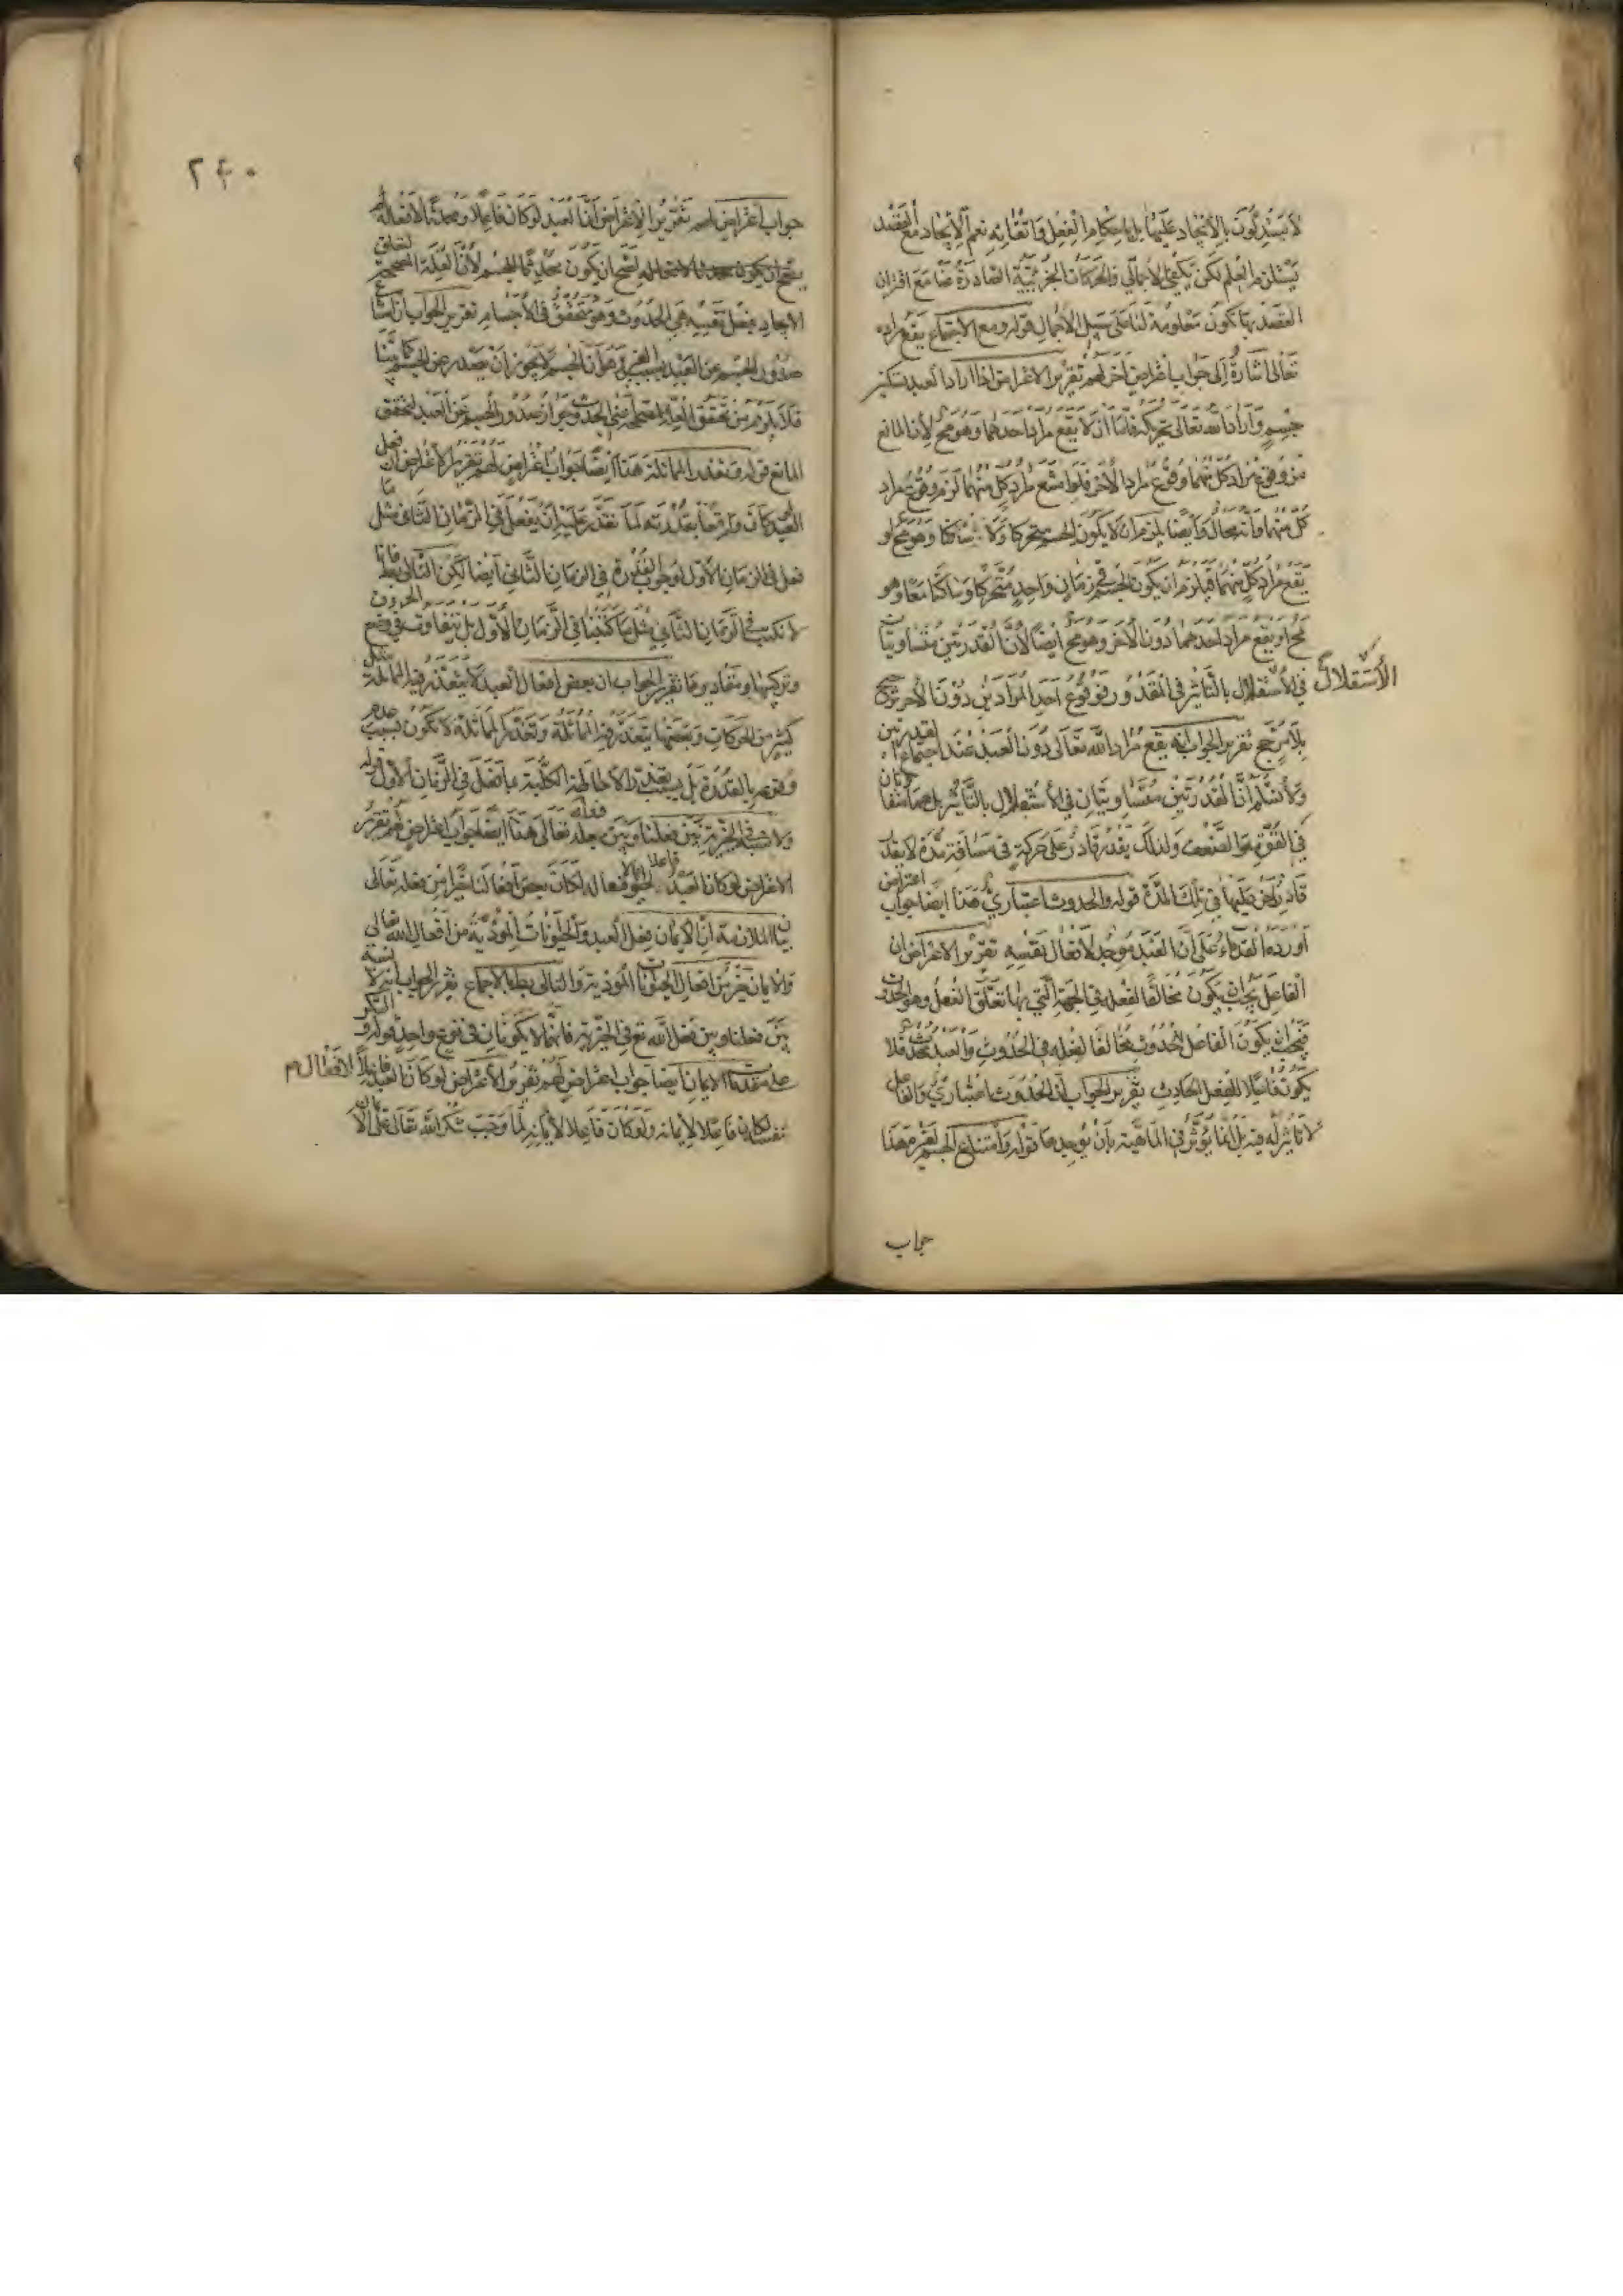 لا يستدلون بالايجاد عليها بل باحكام الفعل واتقانه نعم الايجاد مع القصد
يستلزم العلم لكن يكفي الاجمالي والحركات الجزئية الصادرة عنا مع اقتران
القصد بها تكون معلومة لنا على سبيل الاجمال قوله ومع الاجتماع يقع مراده
تعالى اشارة الى جواب اعتراض اخر لهم تقرير الاعتراض اذا اراد العبد تسكين
جسم واراد الله تعالى تحريكه فاما ان لا يقع مراد احدهما وهو مح لان المانع
من وقوع مراد كل منهما وقوع مراد الاخر فلو امتنع مراد كل منهما لزم وقوع مراد
كل منهما وانه محال وايضا يلزم ان لا يكون الجسم متحركا ولا ساكنا وهو مح او
يقع مراد كل منهما فيلزم ان يكون الجسم في زمان واحد متحركا وساكنا معا وهو
مح او يقع مراد احدهما دون الاخر وهو مح ايضا لان القدرتين متساويتان
في الاستقلال بالتاثير في المقدور فوقوع احد المرادين دون الاخر ترجيح
الاستقلال
بلا مرجح تقرير الجواب انه يقع مراد الله تعالى دون العبد عند اجتماع القدرتين
ولا نسلم ان القدرتين متساويتان في الاستقلال بالتاثير بل هما متفاوتتان
في القوة والضعف ولذلك يقدر قادر على حركة في مسافة مدة لا يقدر
قادر اخر عليها في تلك المدة قوله والحدوث اعتباري هذا ايضا جواب اعتراض
اورده القدماء على ان العبد موجد لافعال نفسه تقرير الاعتراض ان
الفاعل يجب ان يكون مخالفا لفعله في الجهة التي بها تعلق الفعل وهو الحدوث
فيجب ان يكون الفاعل للحدوث مخالفا لفعله في الحدوث والعبد محدث فلا
يكون فاعلا للفعل الحادث تقرير الجواب ان الحدوث اعتباري والفاعل
لا تاثير له فيه بل انما يؤثر في الماهية بان يوجدها قوله وامتناع الجسم لغيره هذا
جواب
٢٤٠
جواب اعتراض لهم تقرير الاعتراض ان العبد لو كان فاعلا ومحدثا لافعاله
يصح ان يكون محدثا للجسم لان العلة المصححة لتعلق
الايجاد بفعل نفسه هي الحدوث وهو متحقق في الاجسام تقرير الجواب ان امتناع
صدور الجسم عن العبد بسبب الغير وهو ان الجسم لا يجوز ان يصدر عن الجسم كما بينا
فلا يلزم من تحقق العلة المصححة اعني الحدوث جواز صدور الجسم عن العبد لتحقق
المانع قوله وتعذر المماثلة هذا ايضا جواب اعتراض لهم تقرير الاعتراض ان فعل
العبد لو كان واقعا بقدرته لما تعذر عليه ان يفعل في الزمان الثاني مثل ما
فعل في الزمان الاول لوجود القدرة في الزمان الثاني ايضا لكن التالي بط فانا
لا نكتب في الزمان الثاني مثل ما كتبنا في الزمان الاول بل يتفاوت في وضع الحروف
وتركيبها ومقاديرها تقرير الجواب ان بعض افعال العبد لا يتعذر فيه المماثلة مثل
كثير من الحركات وبعضها يتعذر فيه المماثلة وتعذر المماثلة لا تكون بسبب عدم
وقوعه بالقدرة بل بسبب تعذر الاحاطة الكلية بما فعل في الزمان الاول قوله
ولا نسبة في الخيرية بين فعلنا وبين فعله تعالى هذا ايضا جواب اعتراض لهم تقرير
الاعتراض لو كان العبد فاعلا لافعاله لكان بعض افعالنا خيرا من فعله تعالى
بيان الملازمة ان الايمان فعل العبد والحيوانات الموذية من افعال الله تعالى
والايمان خير من افعال الحيوانات الموذية والتالي بط بالاجماع تقرير الجواب انه لا نسبة
بين فعلنا وبين فعل الله تع في الخيرية فانهما لا يكونان في نوع واحد قوله والشكر
على مقدمات الايمان ايضا جواب اعتراض لهم تقرير الاعتراض لو كان العبد فاعلا لافعال
نفسه لكان فاعلا لايمانه ولو كان فاعلا لايمانه لما وجب شكر الله تعالى على الايمان